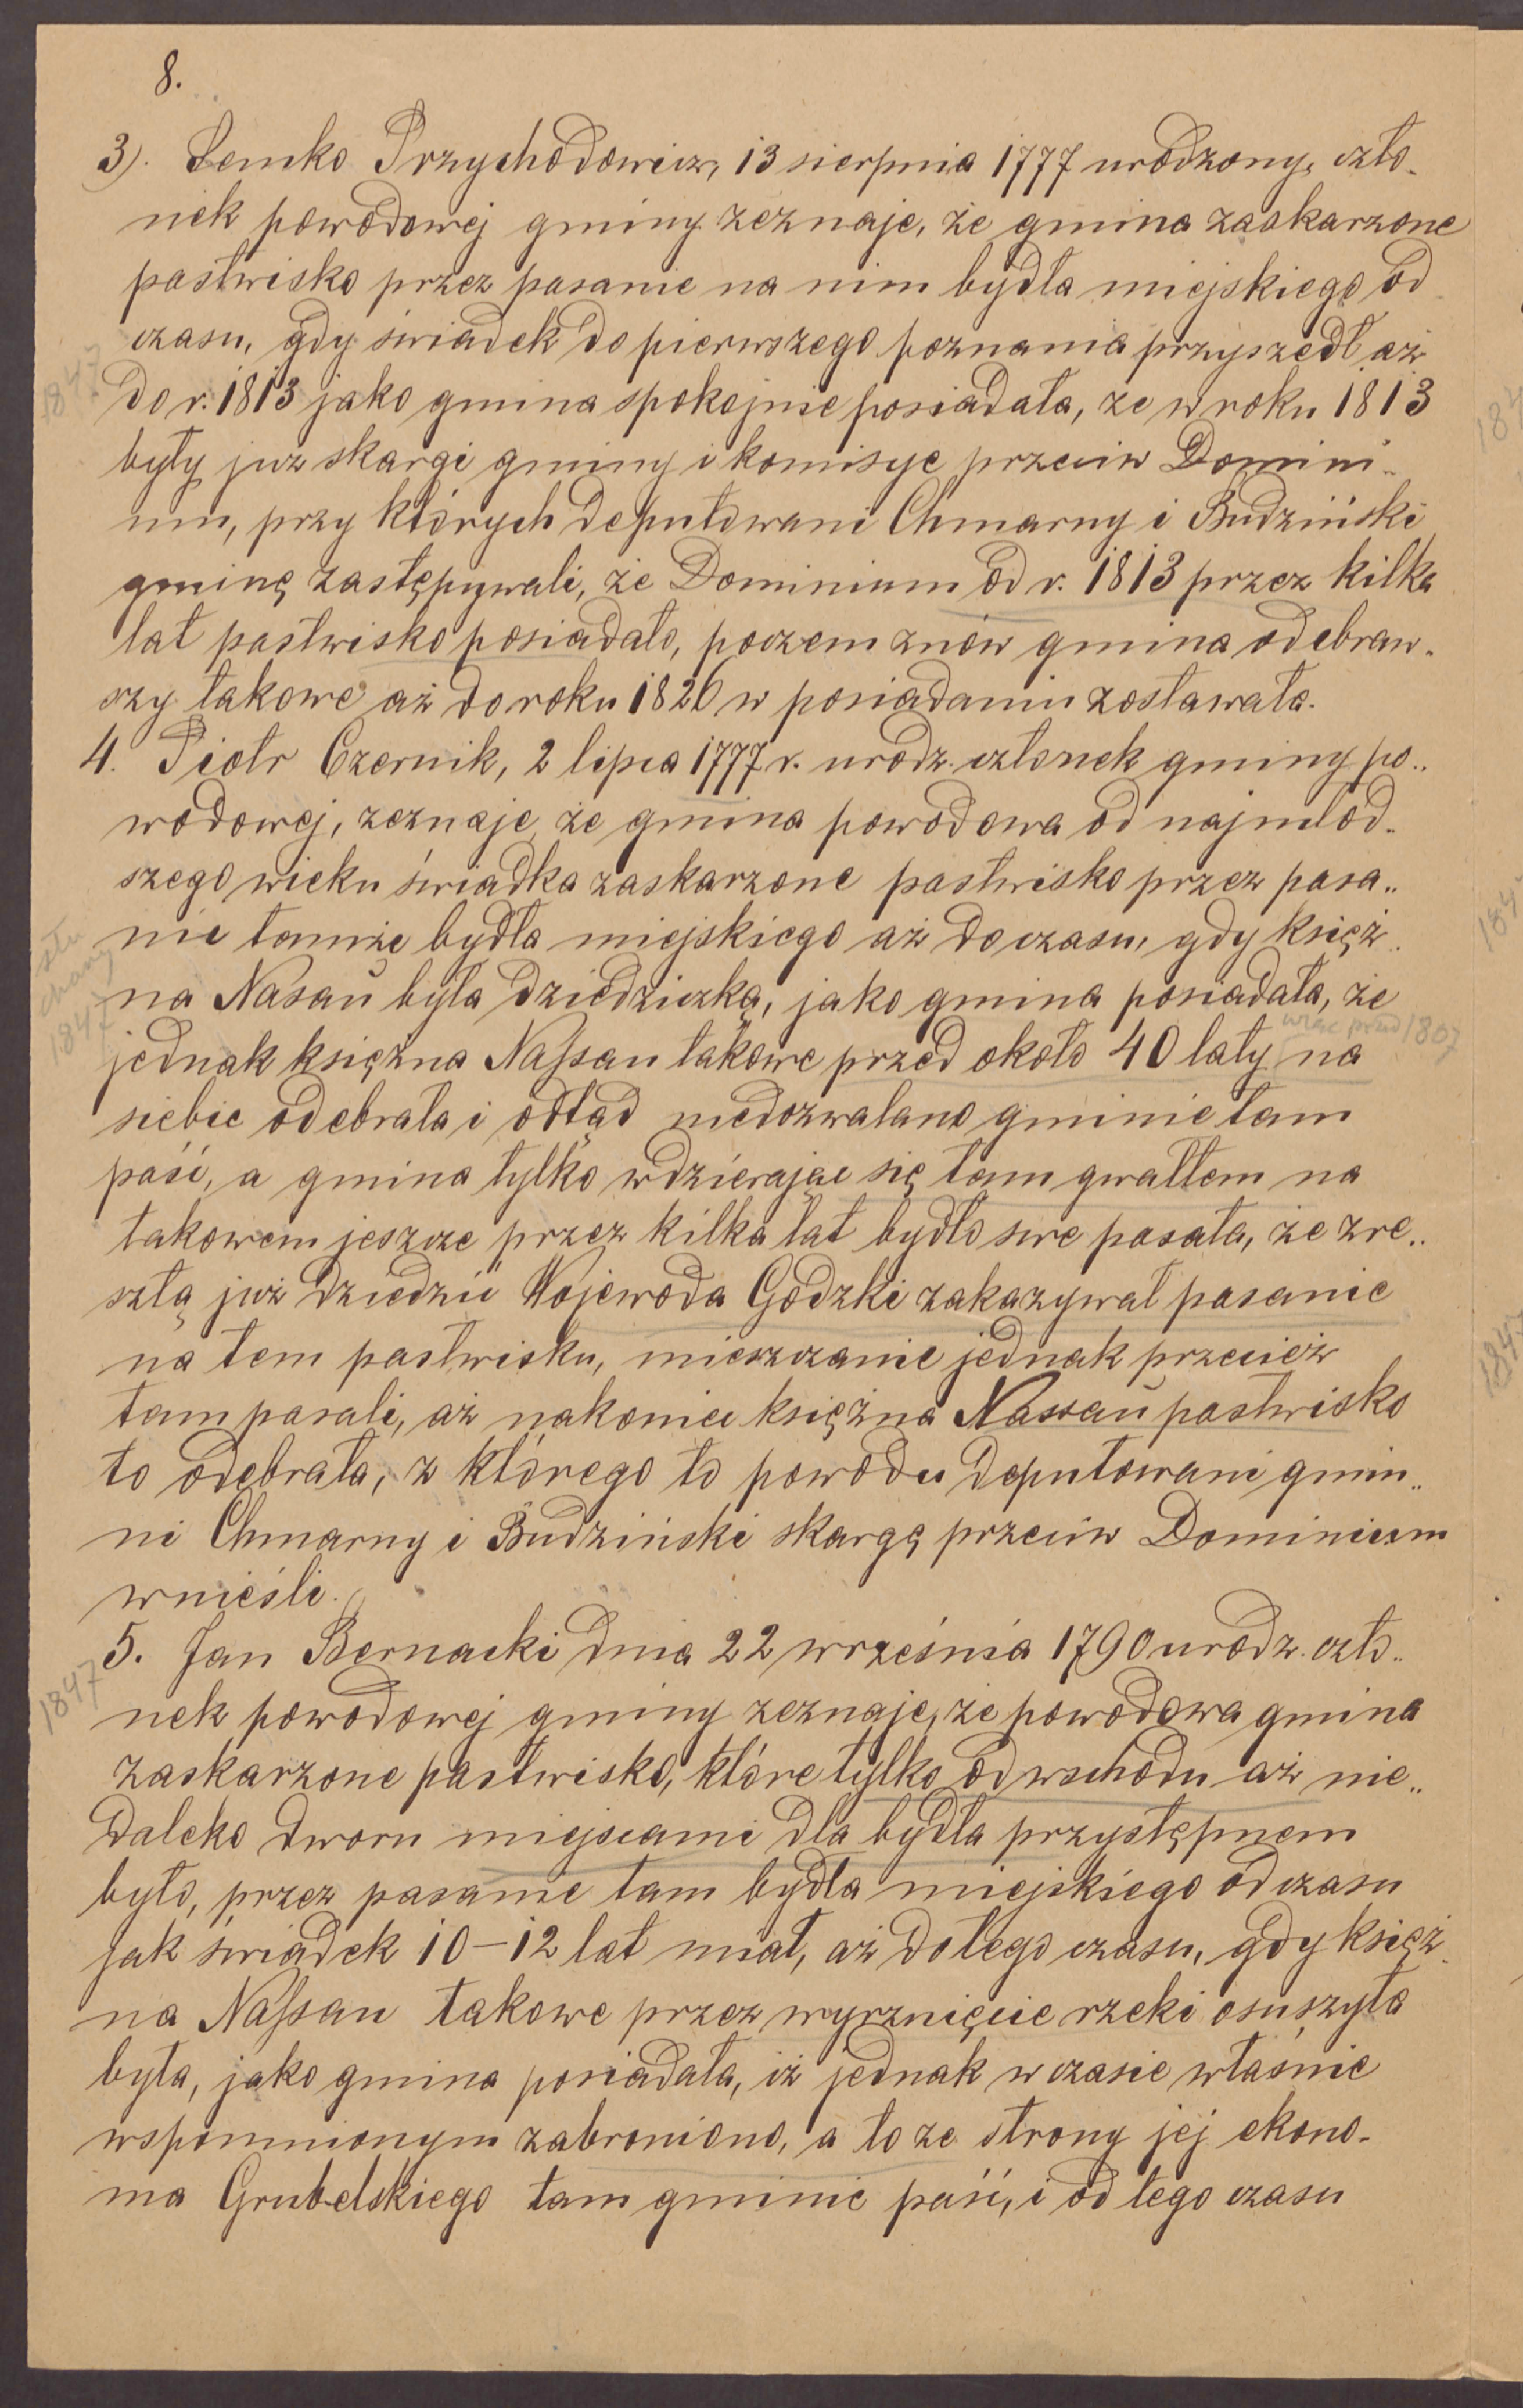 8.
3). Lemko Przychodowicz, 13 sierpnia 1777 urodzony, czło-
nek powodowej gminy zeznaje, że gmina zaskarzone
pastwisko przez pasanie na nim bydła miejskiego od
czasu, gdy świadek do pierwszego poznania przyszedł aż
1847
do r. 1813 jako gmina spokojnie posiadała, że w roku 1813
były już skargi gminy i komisye przeciw Domini-
um, przy których deputowani Chmarny i Budziński
gminę zastępywali, że Dominium od r. 1813 przez kilka
lat pastwisko posiadało, poczem znów gmina odebraw-
szy takowe aż do roku 1826 w posiadaniu zostawała.
4. Piotr Czernik, 2 lipca 1777 r. urodz. członek gminy po-
wodowej, zeznaje, że gmina powodowa od najmłod-
szego wieku świadka zaskarzone pastwisko przez pasa-
nie tamże bydła miejskiego aż do czasu, gdy księż-
słu
chany
1847
na Nasau była dziedziczką, jako gmina posiadała, że
więc przed 1807
jednak księżna Nassau takowe przed około 40 laty na
siebie odebrała i odtąd niedozwalano gminie tam
paść, a gmina tylko wdzierając się tam gwałtem na
takowem jeszcze przez kilka lat bydło swe pasała, że zre-
sztą już dziedzic Wojewoda Godzki zakazywał pasanie
na tem pastwisku, mieszczanie jednak przecież
tam pasali, aż nakoniec księżna Nassau pastwisko
to odebrała, z którego to powodu deputowani gmin-
ni Chmarny i Budziński skargę przeciw Dominium
wnieśli.
5. Jan Bernacki dnia 22 września 1790 urodz. czło-
1847
nek powodowej gminy zeznaje, że powodowa gmina
zaskarzone pastwisko, które tylko od wschodu aż nie-
daleko dworu miejscami dla bydła przystępnem
było, przez pasanie tam bydła miejskiego od czasu
jak świadek 10–12 lat miał, aż do tego czasu, gdy księż-
na Nassau takowe przez wyrznięcie rzeki osuszyła
była, jako gmina posiadała, iż jednak w czasie właśnie
wspomnionym zabroniono, a to ze strony jej ekono-
ma Grubelskiego tam gminie paść, i od tego czasu